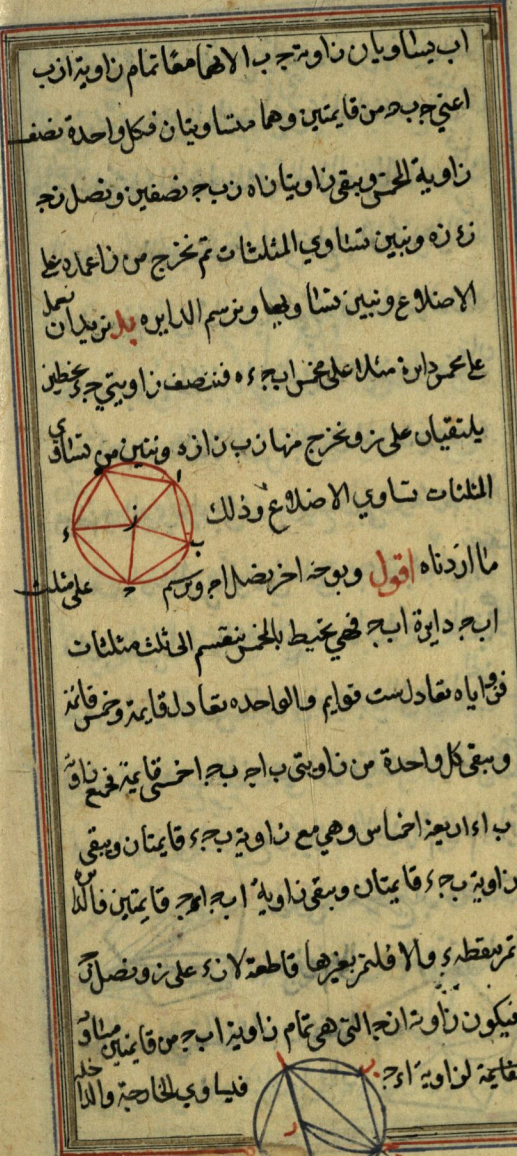 اب يساويان زاوية جـ ب الا لانهما معًا تمام زاوية ا ز ب
اعني جـ ب من قايمتين وهما متساويتان فكل واحدة نصف
زاوية المخمس ويبقى زاويتا ز ب جـ نصفين ونصل ز جـ
ز ء ز ه ونبين تساوي المثلثات ثم نخرج من ز اعمدة على
الاضلاع ونبين تساويها ونرسم الدايره يد نريد ان نعمل
على مخمس دايرة مثلا على مخمس ا ب جـ ء ه فننصف زاويتي جـ ء بخطين
يلتقيان على ز ونخرج منها ز ب ز ا ز ه ونتبين من تساوي
المثلثات تساوي الاضلاع وذلك
ما اردناه اقول وبوجه اخر نصل ا جـ ونرسم على مثلث
ا ب جـ دايرة ا ب جـ فهي تحيط بالمخمس ينقسم الى ثلث مثلثات
فزواياه تعادل ست قوايم والواحده تعادل قايمة وخمس قايمة
ويبقى كل واحدة من زاويتي ب ا جـ ب جـ ا خمسي قايمة فجميع زاوية
ب ا ء اربعة اخماس وهي مع زاوية ب جـ ء قايمتان ويبقى
زاوية ب جـ ء قايمتان ويبقى زاوية ا ب جـ ا ء جـ قايمتين فالدايره
تمر بنقطة ء والا فلتمر بغيرها قاطعة لا ز ء على ز ونصل ز جـ
فيكون زاوية ا ز جـ التي هي تمام زاوية ا ب جـ من قايمتين مساوية
لزاوية ا ء جـ فيساوي الخارجة والداخلة